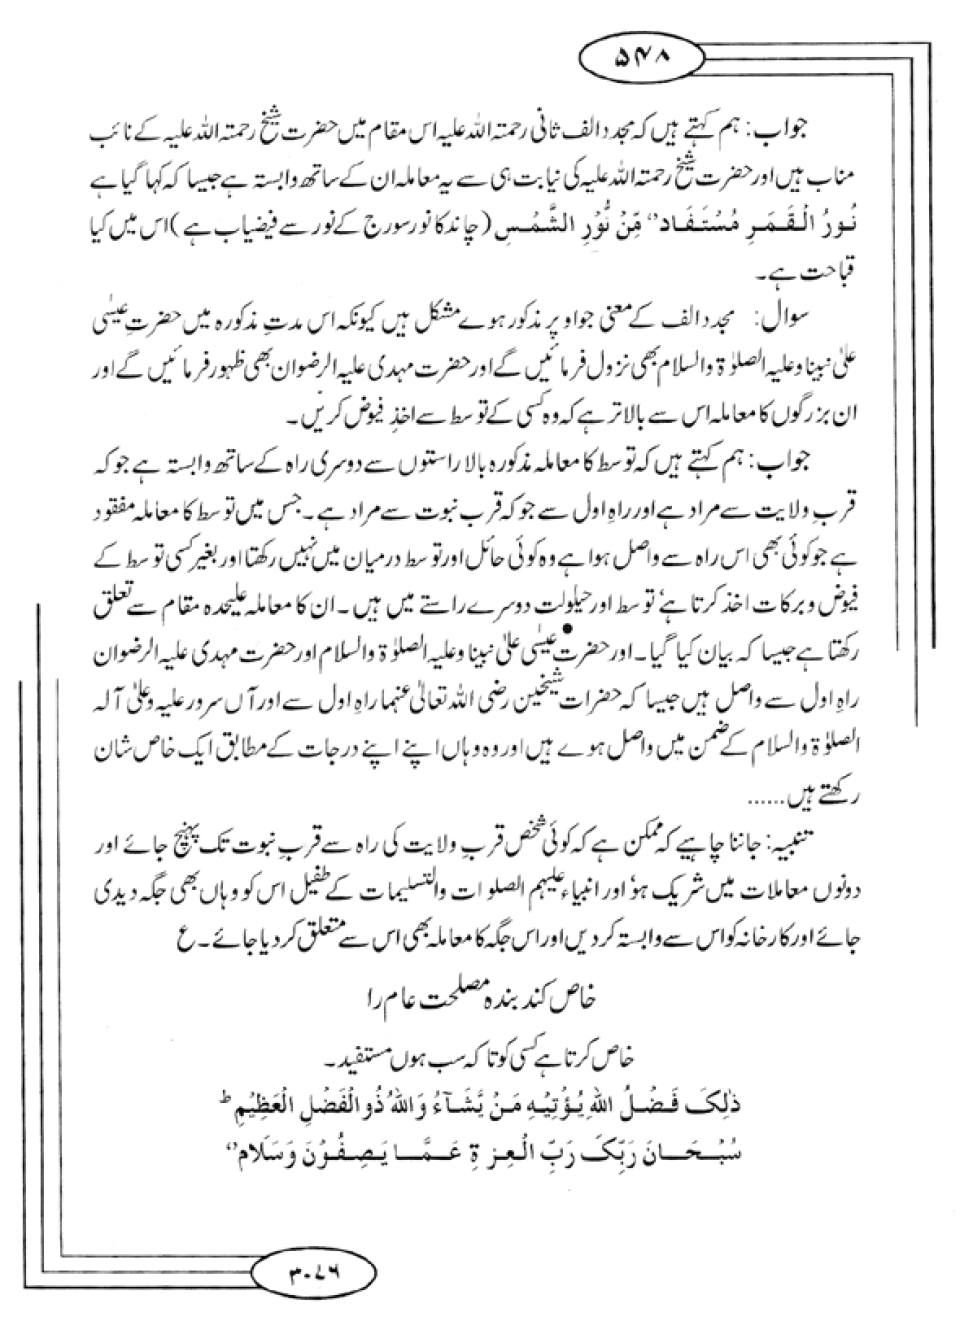 ۵۴۸
جواب: ہم کہتے ہیں کہ مجدد الف ثانی رحمتہ اللہ علیہ اس مقام میں حضرت شیخ رحمتہ اللہ علیہ کے نائب
مناب ہیں اور حضرت شیخ رحمتہ اللہ علیہ کی نیابت ہی سے یہ معاملہ ان کے ساتھ وابستہ ہے جیسا کہ کہا گیا ہے
نُورُ الْقَمَرِ مُسْتَفَاد'' مِّنْ نُّوْرِ الشَّمْسِ (چاند کا نور سورج کے نور سے فیضیاب ہے) اس میں کیا
قباحت ہے۔
سوال: مجدد الف کے معنی جو اوپر مذکور ہوے مشکل ہیں کیونکہ اس مدتِ مذکورہ میں حضرتِ عیسٰی
علیٰ نبینا وعلیہ الصلوٰۃ والسلام بھی نزول فرمائیں گے اور حضرت مہدی علیہ الرضوان بھی ظہور فرمائیں گے اور
ان بزرگوں کا معاملہ اس سے بالاتر ہے کہ وہ کسی کے توسط سے اخذِ فیوض کریں۔
جواب: ہم کہتے ہیں کہ توسط کا معاملہ مذکورہ بالا راستوں سے دوسری راہ کے ساتھ وابستہ ہے جو کہ
قربِ ولایت سے مراد ہے اور راہِ اول سے جو کہ قرب نبوت سے مراد ہے۔ جس میں توسط کا معاملہ مفقود
ہے جو کوئی بھی اس راہ سے واصل ہوا ہے وہ کوئی حائل اور توسط درمیان میں نہیں رکھتا اور بغیر کسی توسط کے
فیوض و برکات اخذ کرتا ہے' توسط اور حیلولت دوسرے راستے میں ہیں۔ ان کا معاملہ علیحدہ مقام سے تعلق
رکھتا ہے جیسا کہ بیان کیا گیا۔ اور حضرت عیسٰی علیٰ نبینا وعلیہ الصلوٰۃ والسلام اور حضرت مہدی علیہ الرضوان
راہِ اول سے واصل ہیں جیسا کہ حضرات شیخین رضی اللہ تعالیٰ عنہما راہِ اول سے اور آں سرور علیہ وعلیٰ آلہ
الصلوٰۃ والسلام کے ضمن میں واصل ہوے ہیں اور وہ وہاں اپنے اپنے درجات کے مطابق ایک خاص شان
رکھتے ہیں ......
تنبیہ: جاننا چاہیے کہ ممکن ہے کہ کوئی شخص قربِ ولایت کی راہ سے قربِ نبوت تک پہنچ جائے اور
دونوں معاملات میں شریک ہو' اور انبیاء علیہم الصلوات والتسلیمات کے طفیل اس کو وہاں بھی جگہ دیدی
جائے اور کارخانہ کو اس سے وابستہ کردیں اور اس جگہ کا معاملہ بھی اس سے متعلق کردیا جائے۔ ع
خاص کند بندہ مصلحت عام را
خاص کرتا ہے کسی کو تا کہ سب ہوں مستفید۔
ذٰلِکَ فَضْلُ اللّٰہِ یُؤْتِیْہِ مَنْ یَّشَآءُ وَاللّٰہُ ذُو الْفَضْلِ الْعَظِیْمِ ط
سُبْحَانَ رَبِّکَ رَبِّ الْعِزَّۃِ عَمَّا یَصِفُوْنَ وَسَلَام''
۳۰۷۶